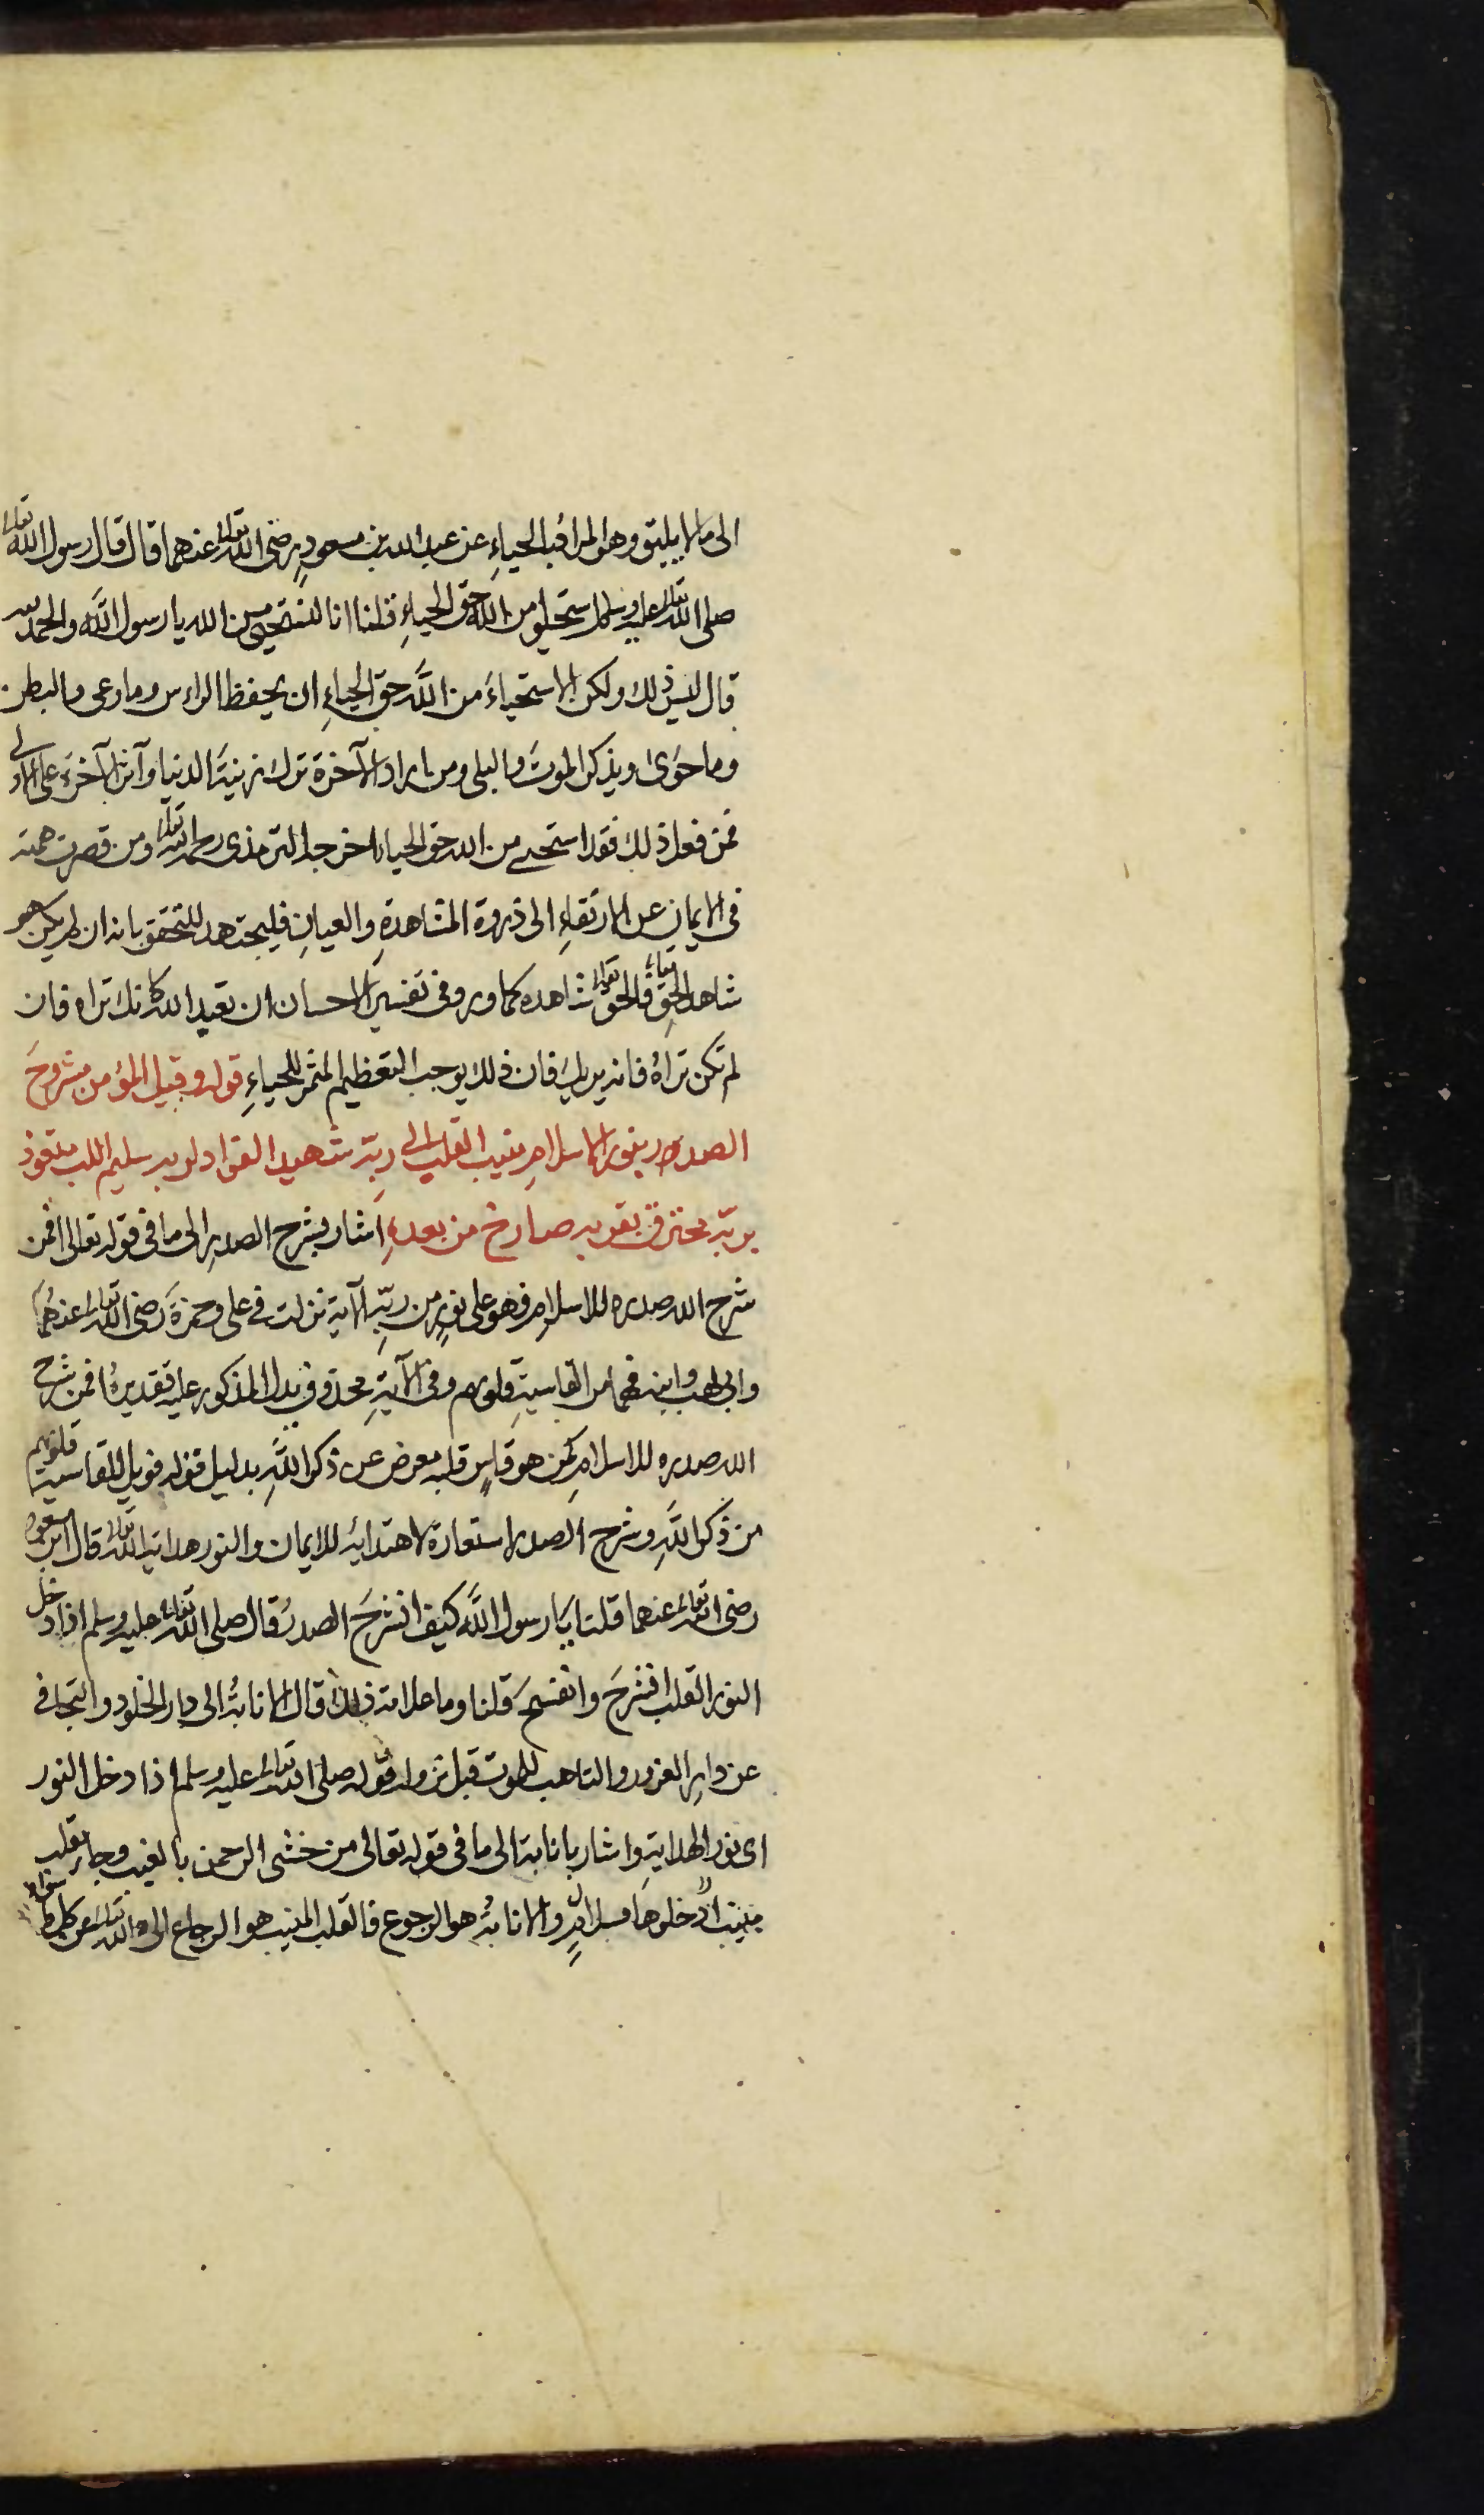 الى ما لا يليق وهو المراقب الحياءِ عن عبد الله بن مسعودٍ رضى الله تعالى عنهما قال قال رسول الله تعالى
صلى الله تعالى عليه وسلم استحيوا من الله حق الحياءِ قلنا انا لنستحيى من الله يا رسول الله والحمد لله
قال ليس ذلك ولكن الاستحياءَ من اللَّه حق الحياءِ ان يحفظ الراس وما وعى والبطن
وما حوى ويذكر الموتَ والبلى ومن اراد الآخرة ترك زينةَ الدنيا وآثر الآخرة على الاولى
فمن فعل ذلك فقد استحيى من الله حق الحياء اخرجه الترمذى رحمه الله تعالى ومن قصرت همته
فى الايمان عن الارتقاءِ الى ذروة المشاهدةِ والعيانِ فليجتهد للتحقق بانه ان لم يكن هو
شاهد الحقِ تعالى فالحق تعالى شاهده كما ورد فى تفسير الاحسان ان تعبد الله كانك تراه فان
لم تكن تراهُ فانه يريك فان ذلك يوجب التعظيم المثمر للحياءِ قوله وقيل المؤمن مشروحَ
الصدر بنور الاسلامِ منيب القلب الى ربّه شهيد الفؤاد لربه سليم اللب متعوذ
بربّه محترق بقربه صارخ من بعدهِ اشار بشرح الصدرِ الى ما فى قوله تعالى افمن
شرح الله صدره للاسلامِ فهو على نورٍ من ربّه الآية نزلت فى على وحمزةَ رضى الله تعالى عنهُمَا
وابى لهب وابنه فهما من القاسيةِ قلوبهم وفى الآيةِ محذوف يدل المذكور عليه تقديرهُ افمن شرح
الله صدره للاسلامِ كمن هو قاسٍ قلبه معرض عن ذكر اللَّهِ بدليل قوله فويل للقاسية قلوبهم
من ذكر اللَّهِ وشرح الصدر استعارة لاهتدائه للايمان والنور هداية الله تعالى قال ابن مسعود
رضى الله تعالى عنهما قلنا يَا رسول اللَّه كيف انشرحَ الصدرُ قال صلى الله تعالى عليه وسلم اذا دخل
النور القلب انشرحَ وانفسحَ قلنا وما علامة ذلك قال الانابةُ الى دار الخلود والتجافى
عن دارِ الغرور والتاهب للموت قبل نزوله قوله صلى الله تعالى عليه وسلم اذا دخل النور
اى نور الهدايةِ واشار بانابة الى ما فى قوله تعالى من خشى الرحمن بالغيب وجاء بقلب
منيب ادخلوها بسلامٍ والانابةُ هو الرجوع فالقلب المنيب هو الرجاع الى الله تعالى عن كل ما سواه